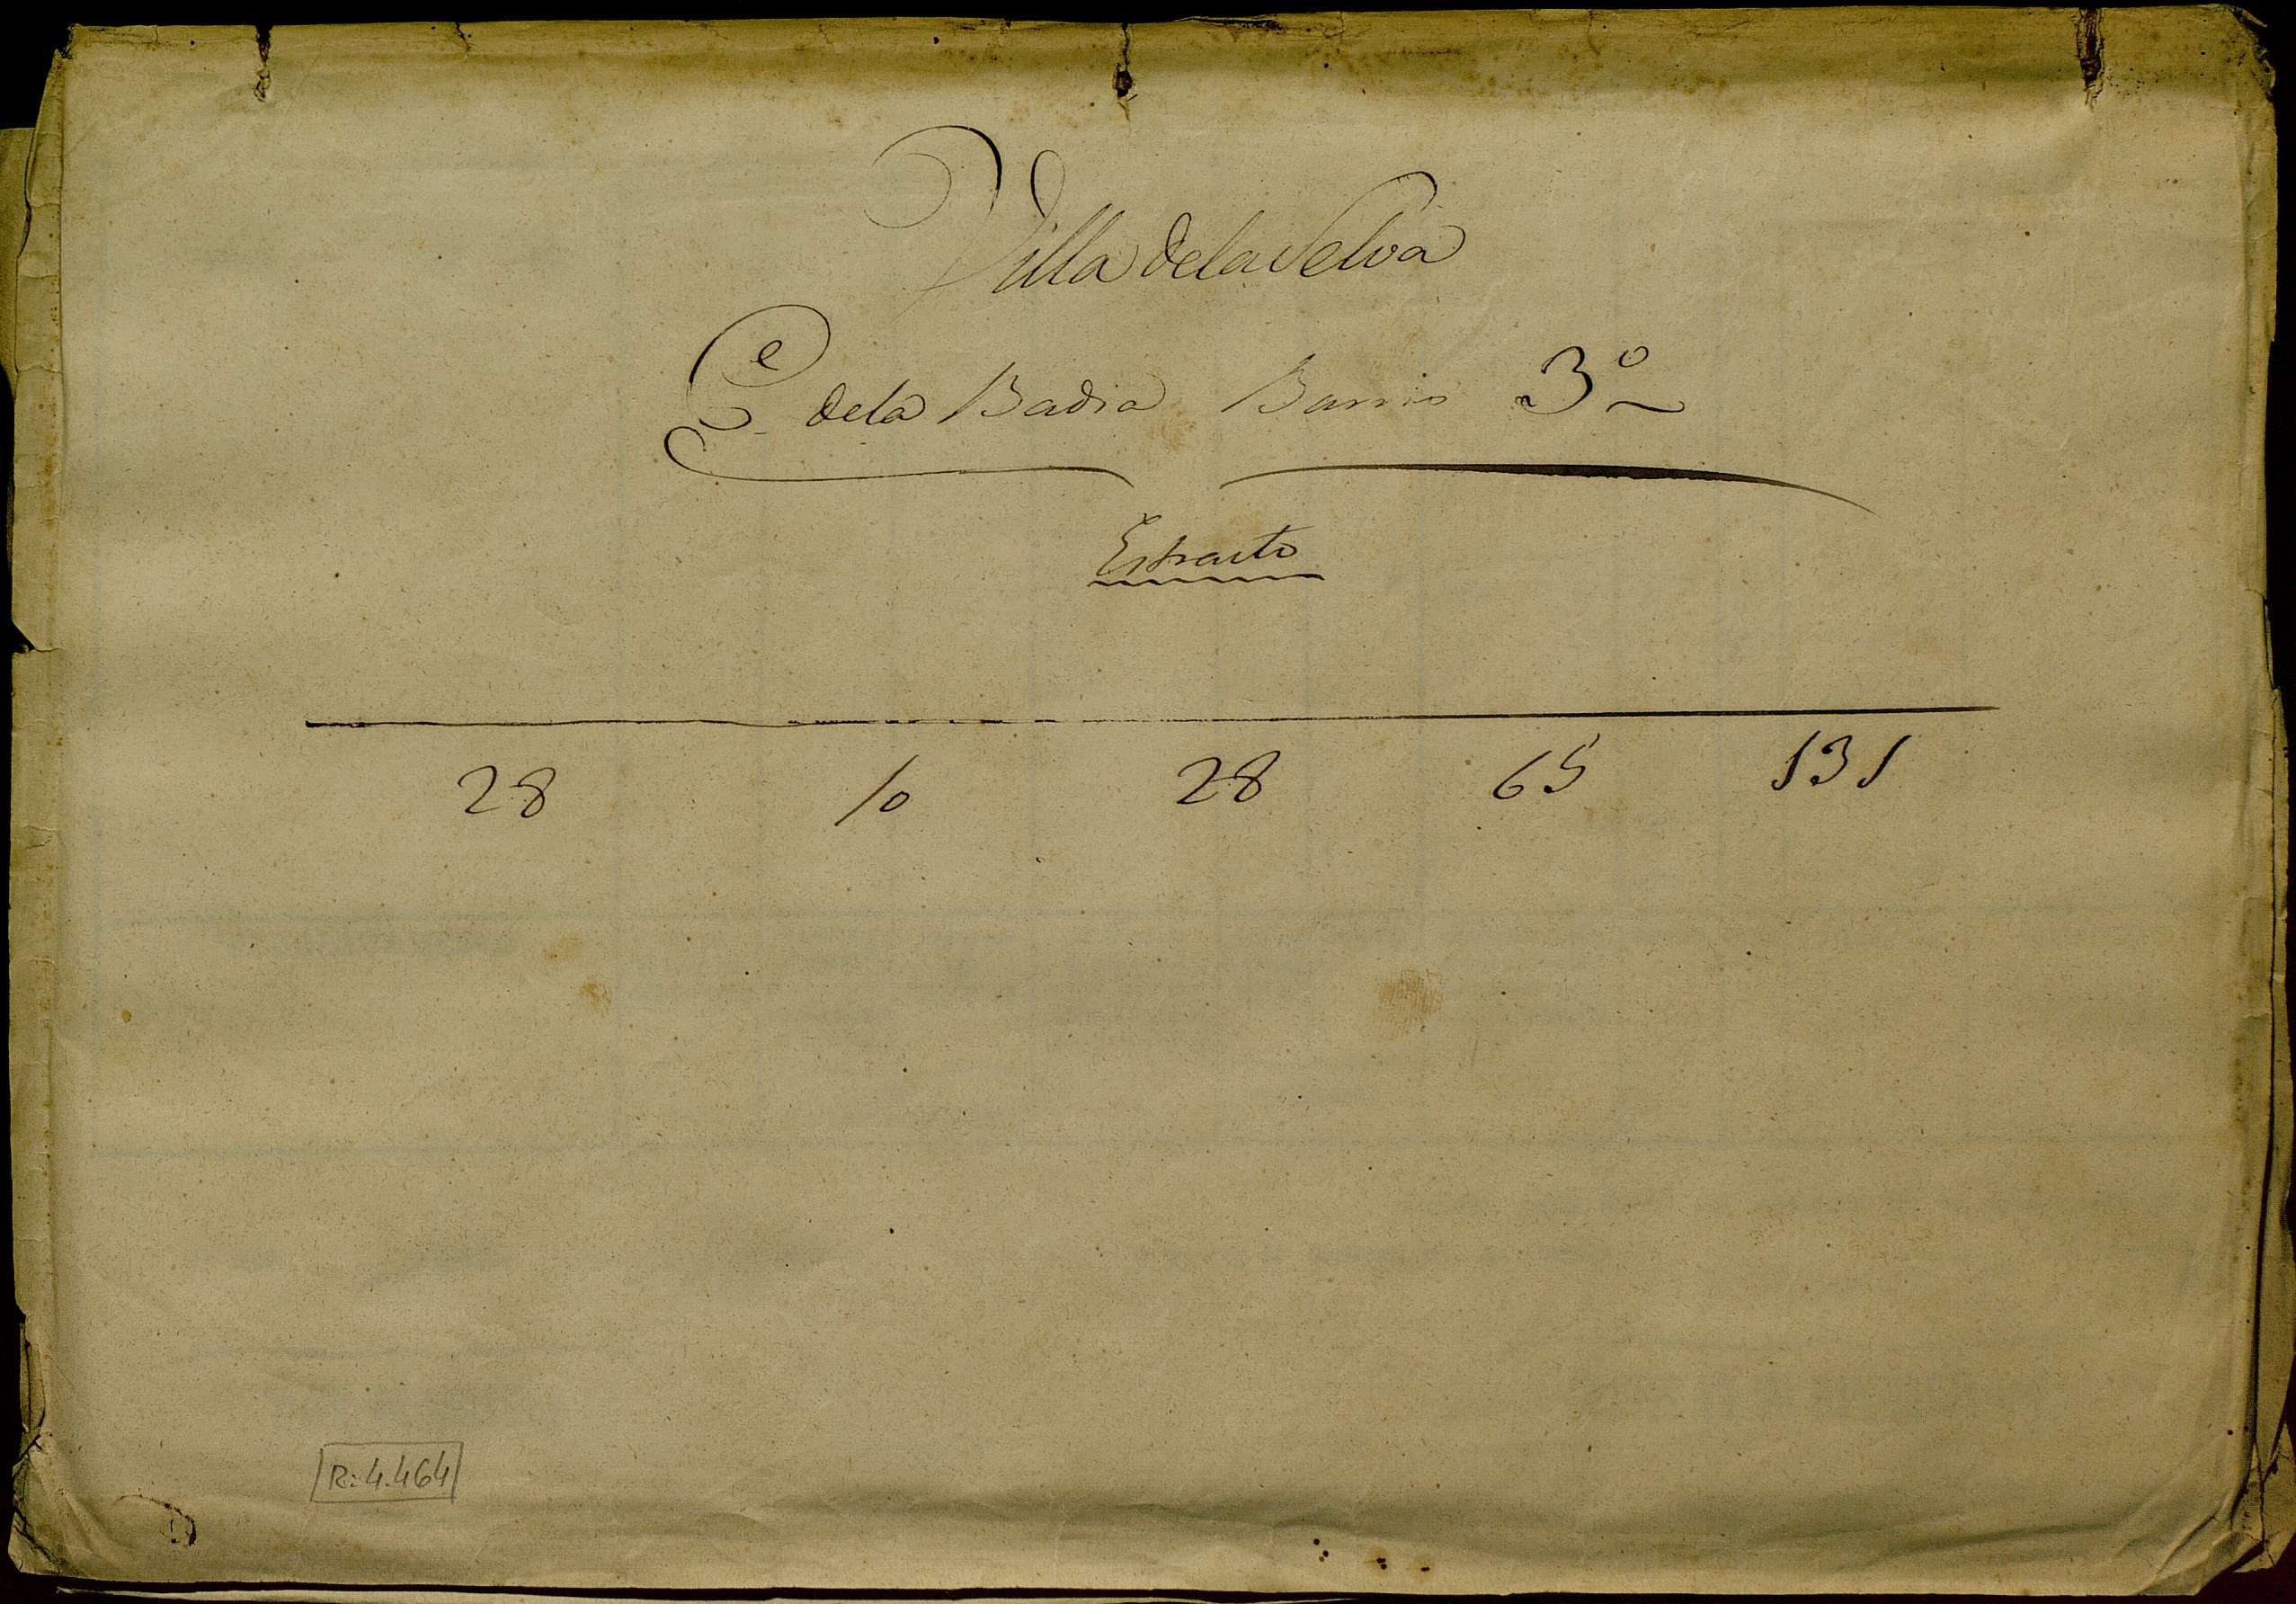 Villa de la Selva
Ce de la Badia Barrio 3o
Estracto
28 10 28 65 131
R: 4.464